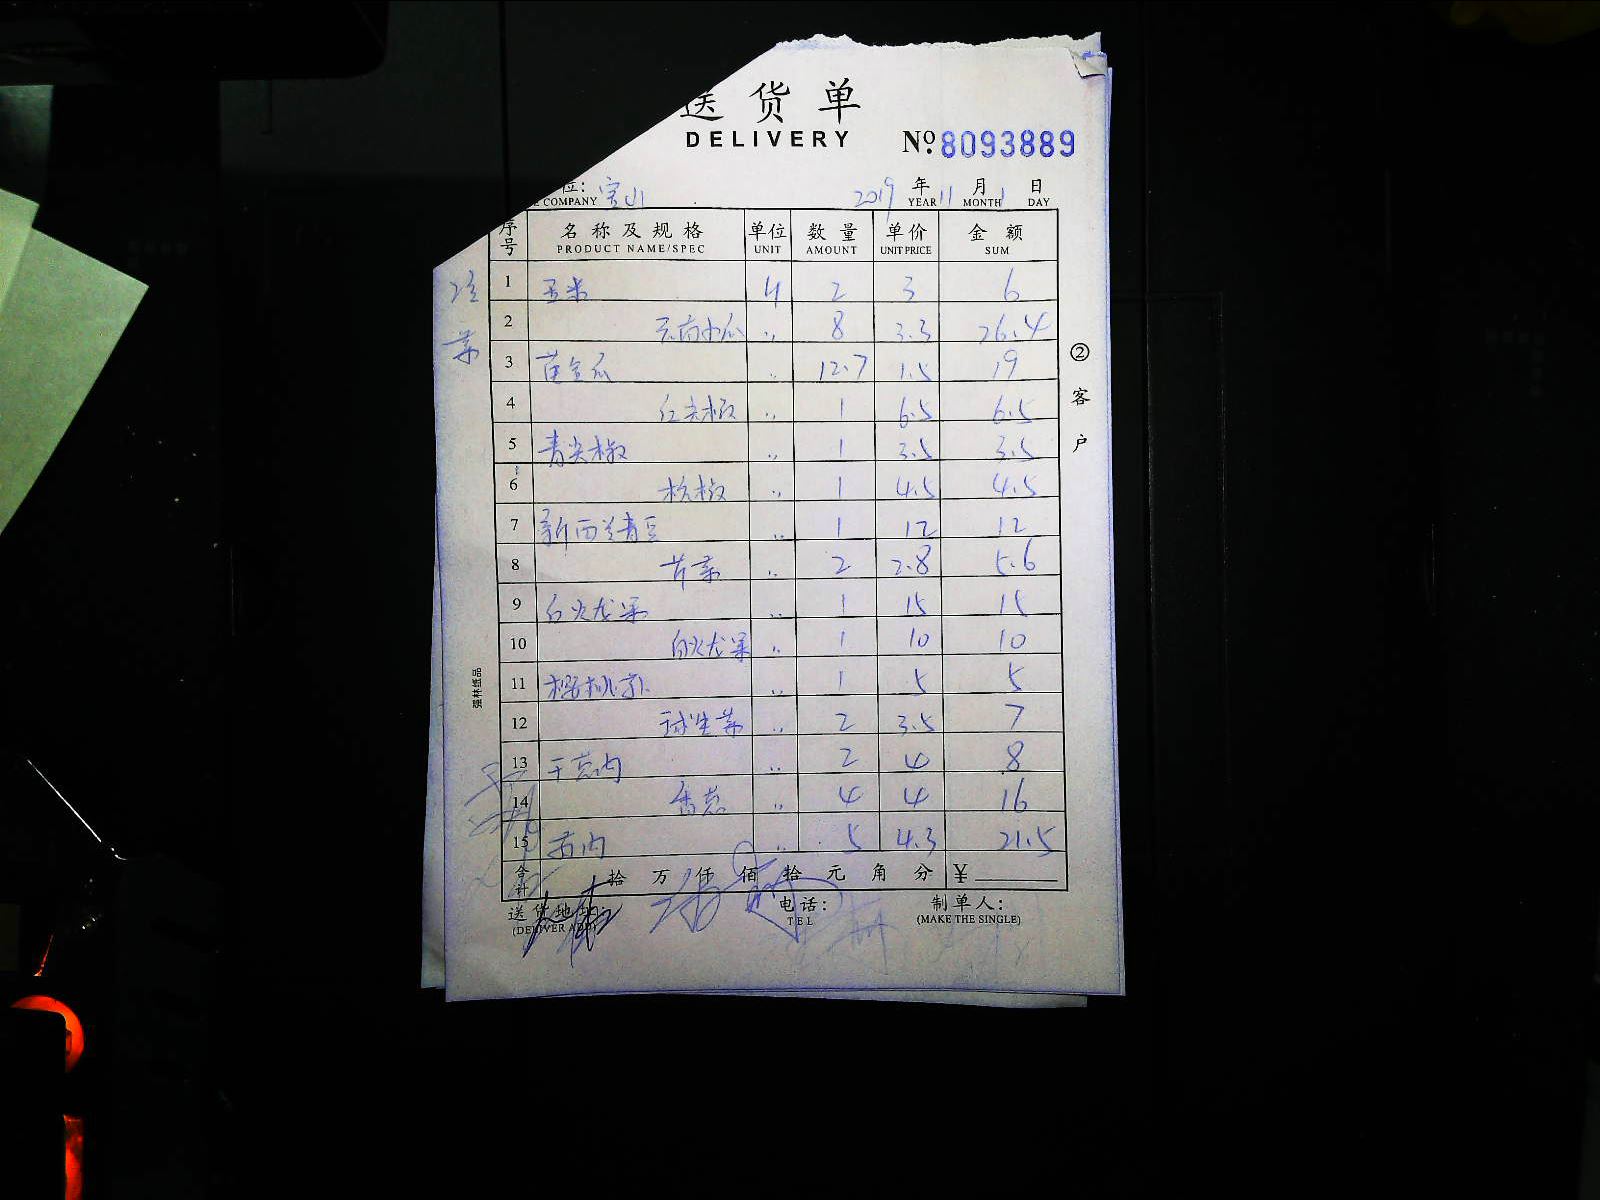 送货单
DELIVERY
№ 8093889
位: 宝山 2019 年 11 月 1 日
E COMPANY YEAR MONTH DAY
序号 名称及规格 单位 数量 单价 金额
PRODUCT NAME/SPEC UNIT AMOUNT UNIT PRICE SUM
1 玉米 2 3 6
2 无 瓜 〃 8 3.3 26.4
3 黄金瓜 〃 12.7 1.5 19
4 红尖椒 〃 1 6.5 6.5
5 青尖椒 〃 1 3.5 3.5
6 杭椒 〃 1 4.5 4.5
7 新西兰青豆 〃 1 12 12
8 芹菜 〃 2 2.8 5.6
9 红火龙果 〃 1 15 15
10 白火龙果 〃 1 10 10
11 樱桃 〃 1 5 5
12 球生菜 〃 2 3.5 7
13 干葱肉 〃 2 4 8
14 香葱 〃 4 4 16
15 肉 〃 5 4.3 21.5
合计 拾 万 仟 佰 拾 元 角 分 ¥
送货地址: 电话: 制单人:
(DELIVER ADD) TEL (MAKE THE SINGLE)
②客户
强林纸品